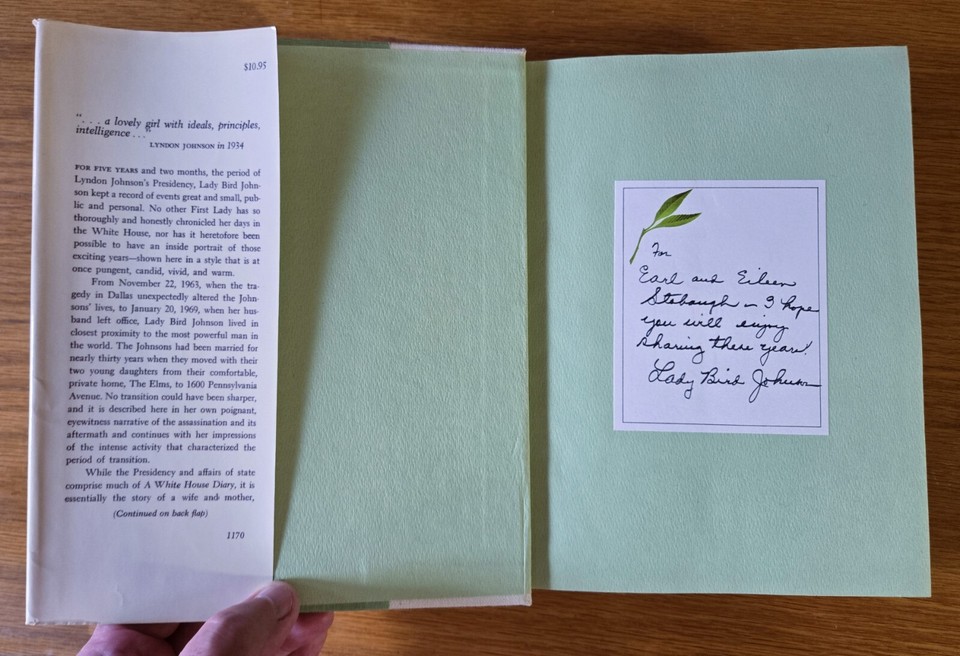 $10.95
". . . a lovely girl with ideals, principles,
intelligence . . ."
LYNDON JOHNSON in 1934
FOR FIVE YEARS and two months, the period of
Lyndon Johnson's Presidency, Lady Bird John-
son kept a record of events great and small, pub-
lic and personal. No other First Lady has so
thoroughly and honestly chronicled her days in
the White House, nor has it heretofore been
possible to have an inside portrait of those
exciting years—shown here in a style that is at
once pungent, candid, vivid, and warm.
From November 22, 1963, when the tra-
gedy in Dallas unexpectedly altered the John-
sons' lives, to January 20, 1969, when her hus-
band left office, Lady Bird Johnson lived in
closest proximity to the most powerful man in
the world. The Johnsons had been married for
nearly thirty years when they moved with their
two young daughters from their comfortable,
private home, The Elms, to 1600 Pennsylvania
Avenue. No transition could have been sharper,
and it is described here in her own poignant,
eyewitness narrative of the assassination and its
aftermath and continues with her impressions
of the intense activity that characterized the
period of transition.
While the Presidency and affairs of state
comprise much of A White House Diary, it is
essentially the story of a wife and mother,
(Continued on back flap)
1170
For
Earl and Eileen
Stebaugh - I hope
you will enjoy
sharing these years!
Lady Bird Johnson